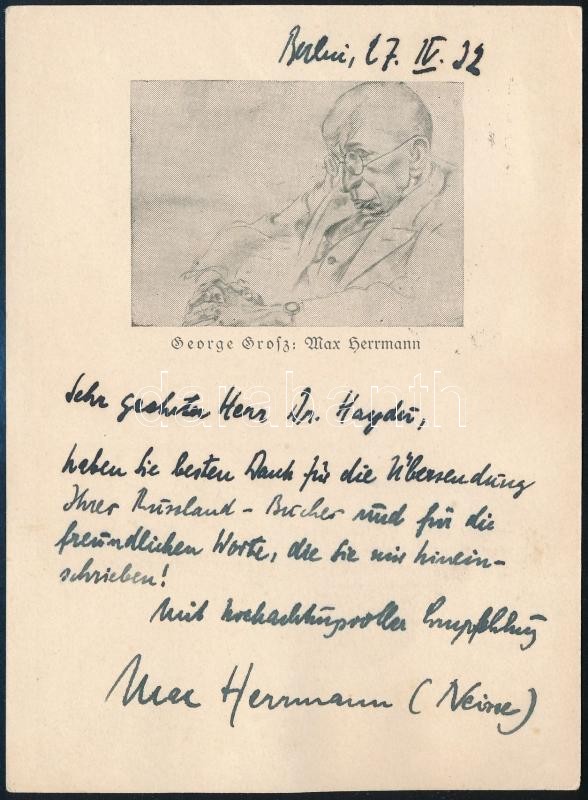 Berlin, 27. IV. 32
George Grosz: Max Herrmann
Sehr geehrter Herr Dr. Haydu,
haben Sie besten Dank für die Übersendung
Ihres Russland-Buches und für die
freundlichen Worte, die Sie mir hinein-
schrieben!
Mit hochachtungsvoller Empfehlung
Max Herrmann (Neisse)
darabanth